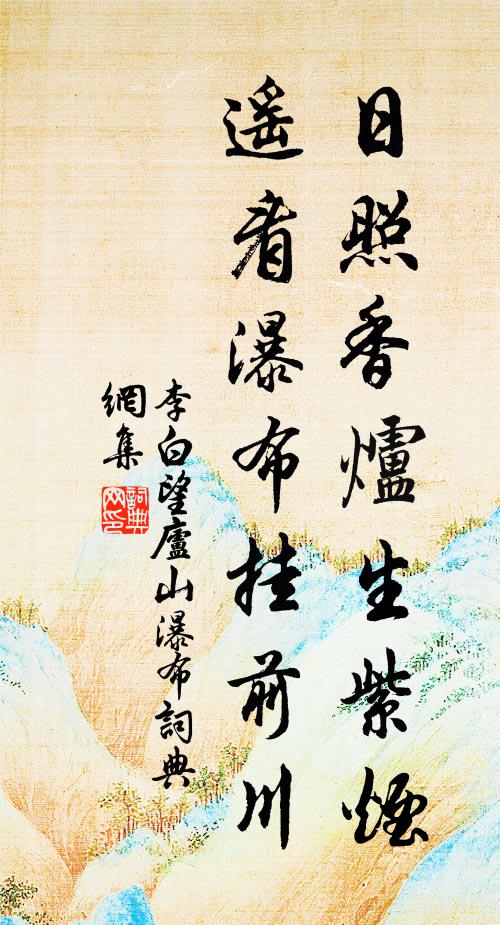 日照香爐生紫煙
遥看瀑布挂前川
李白望廬山瀑布詞典
網集
詞典
网印